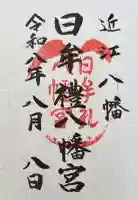 近江八幡
日牟禮八幡宮
令和八年八月八日
日牟礼
八幡宮